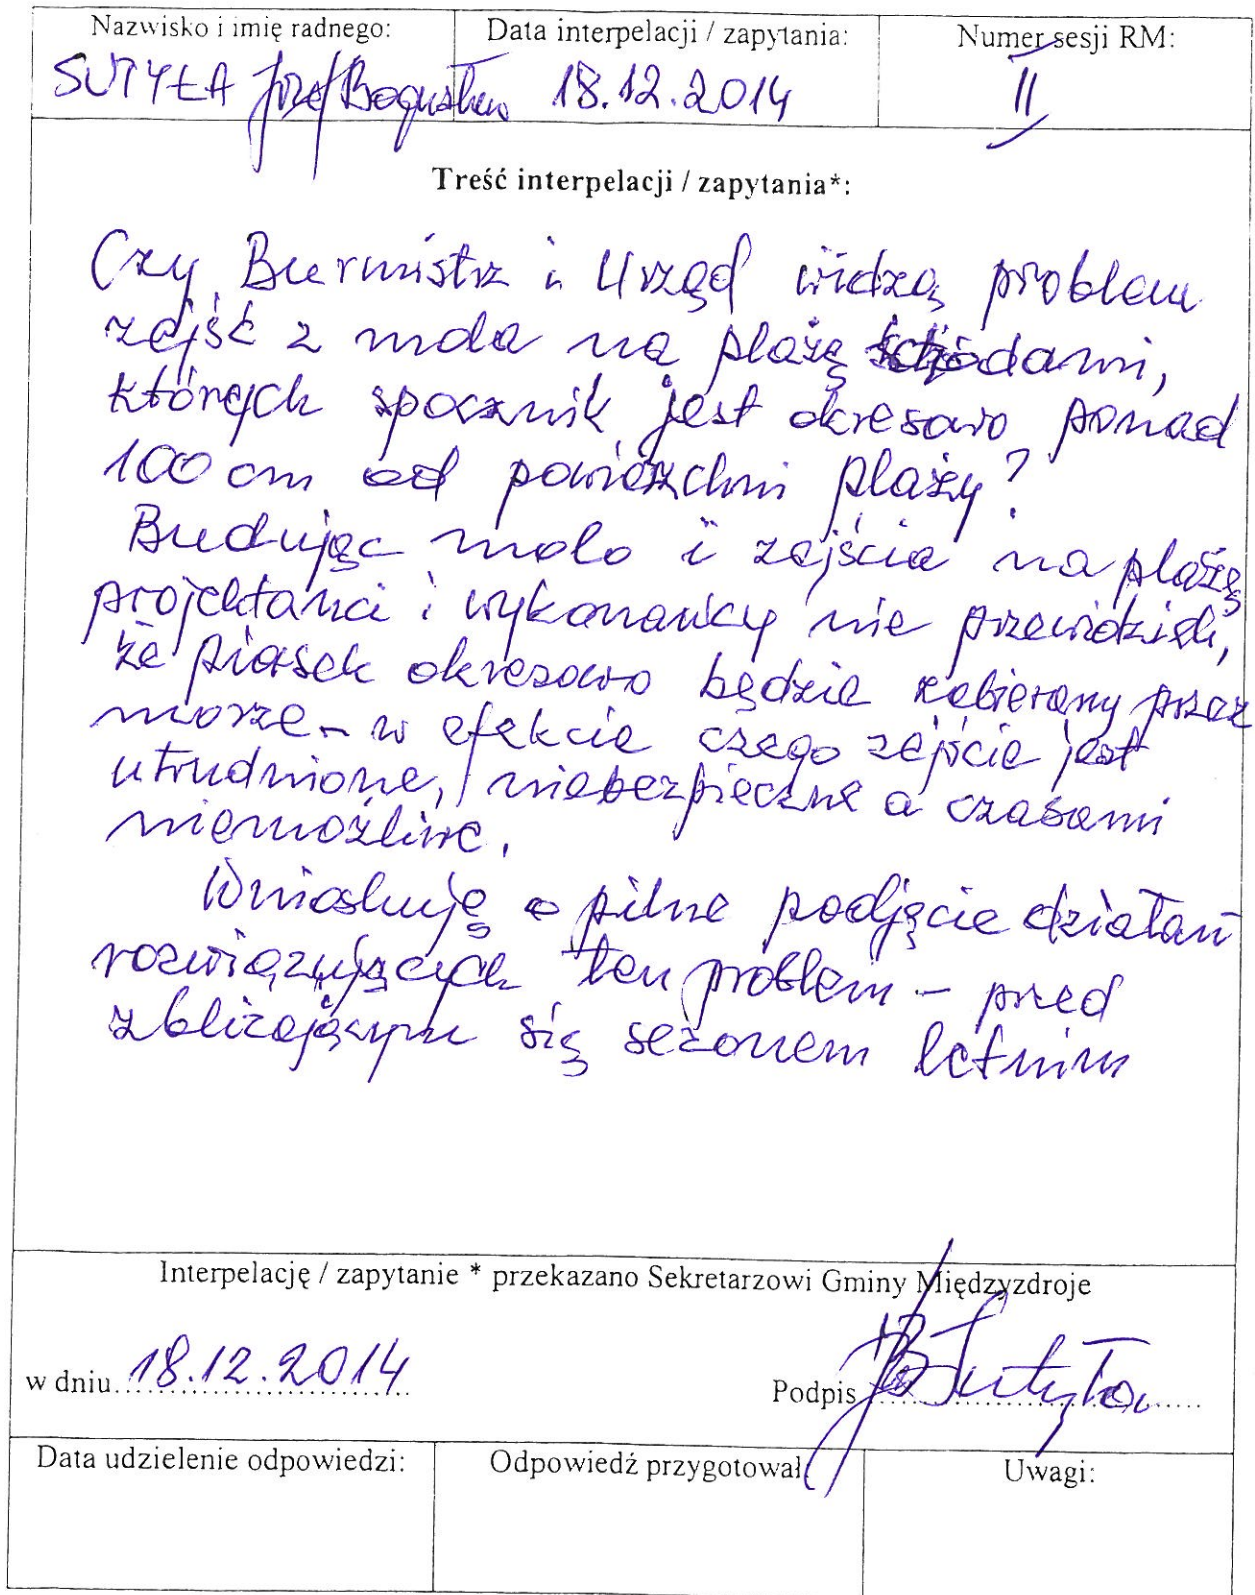 Nazwisko i imię radnego: Data interpelacji / zapytania: Numer sesji RM:
SUTYŁA Józef Bogusław 18.12.2014 II
Treść interpelacji / zapytania*:
Czy Burmistrz i Urząd widzą problem
zejść z mola na plażę schodami,
których spocznik jest okresowo ponad
100 cm od powierzchni plaży?
Budując molo i zejścia na plażę
projektanci i wykonawcy nie przewidzieli,
że piasek okresowo będzie zabierany przez
morze - w efekcie czego zejście jest
utrudnione, niebezpieczne a czasami
niemożliwe.
Wnioskuję o pilne podjęcie działań
rozwiązujących ten problem - przed
zbliżającym się sezonem letnim
Interpelację / zapytanie * przekazano Sekretarzowi Gminy Międzyzdroje
w dniu 18.12.2014 Podpis JB Sutyła
Data udzielenie odpowiedzi: Odpowiedź przygotował Uwagi: